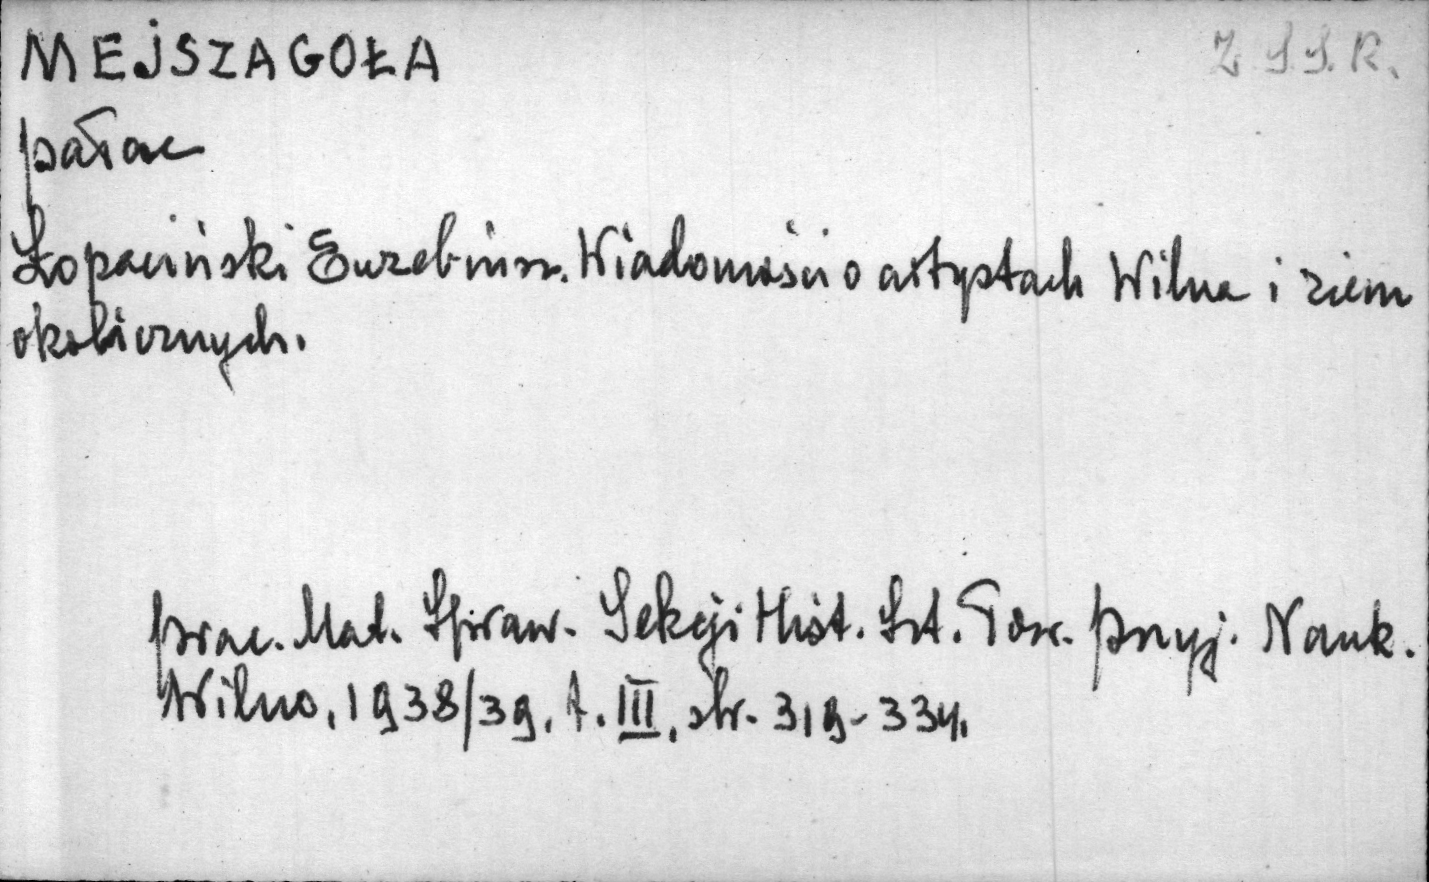 MEJSZAGOŁA
Z.S.S.R.
pałac
Łopaciński Euzebiusz. Wiadomości o artystach Wilna i ziem
okolicznych.
Prac. Mat. Spraw. Sekcji Hist. Szt. Tow. Przyj. Nauk.
Wilno, 1938/39, t. III, str. 319-334.